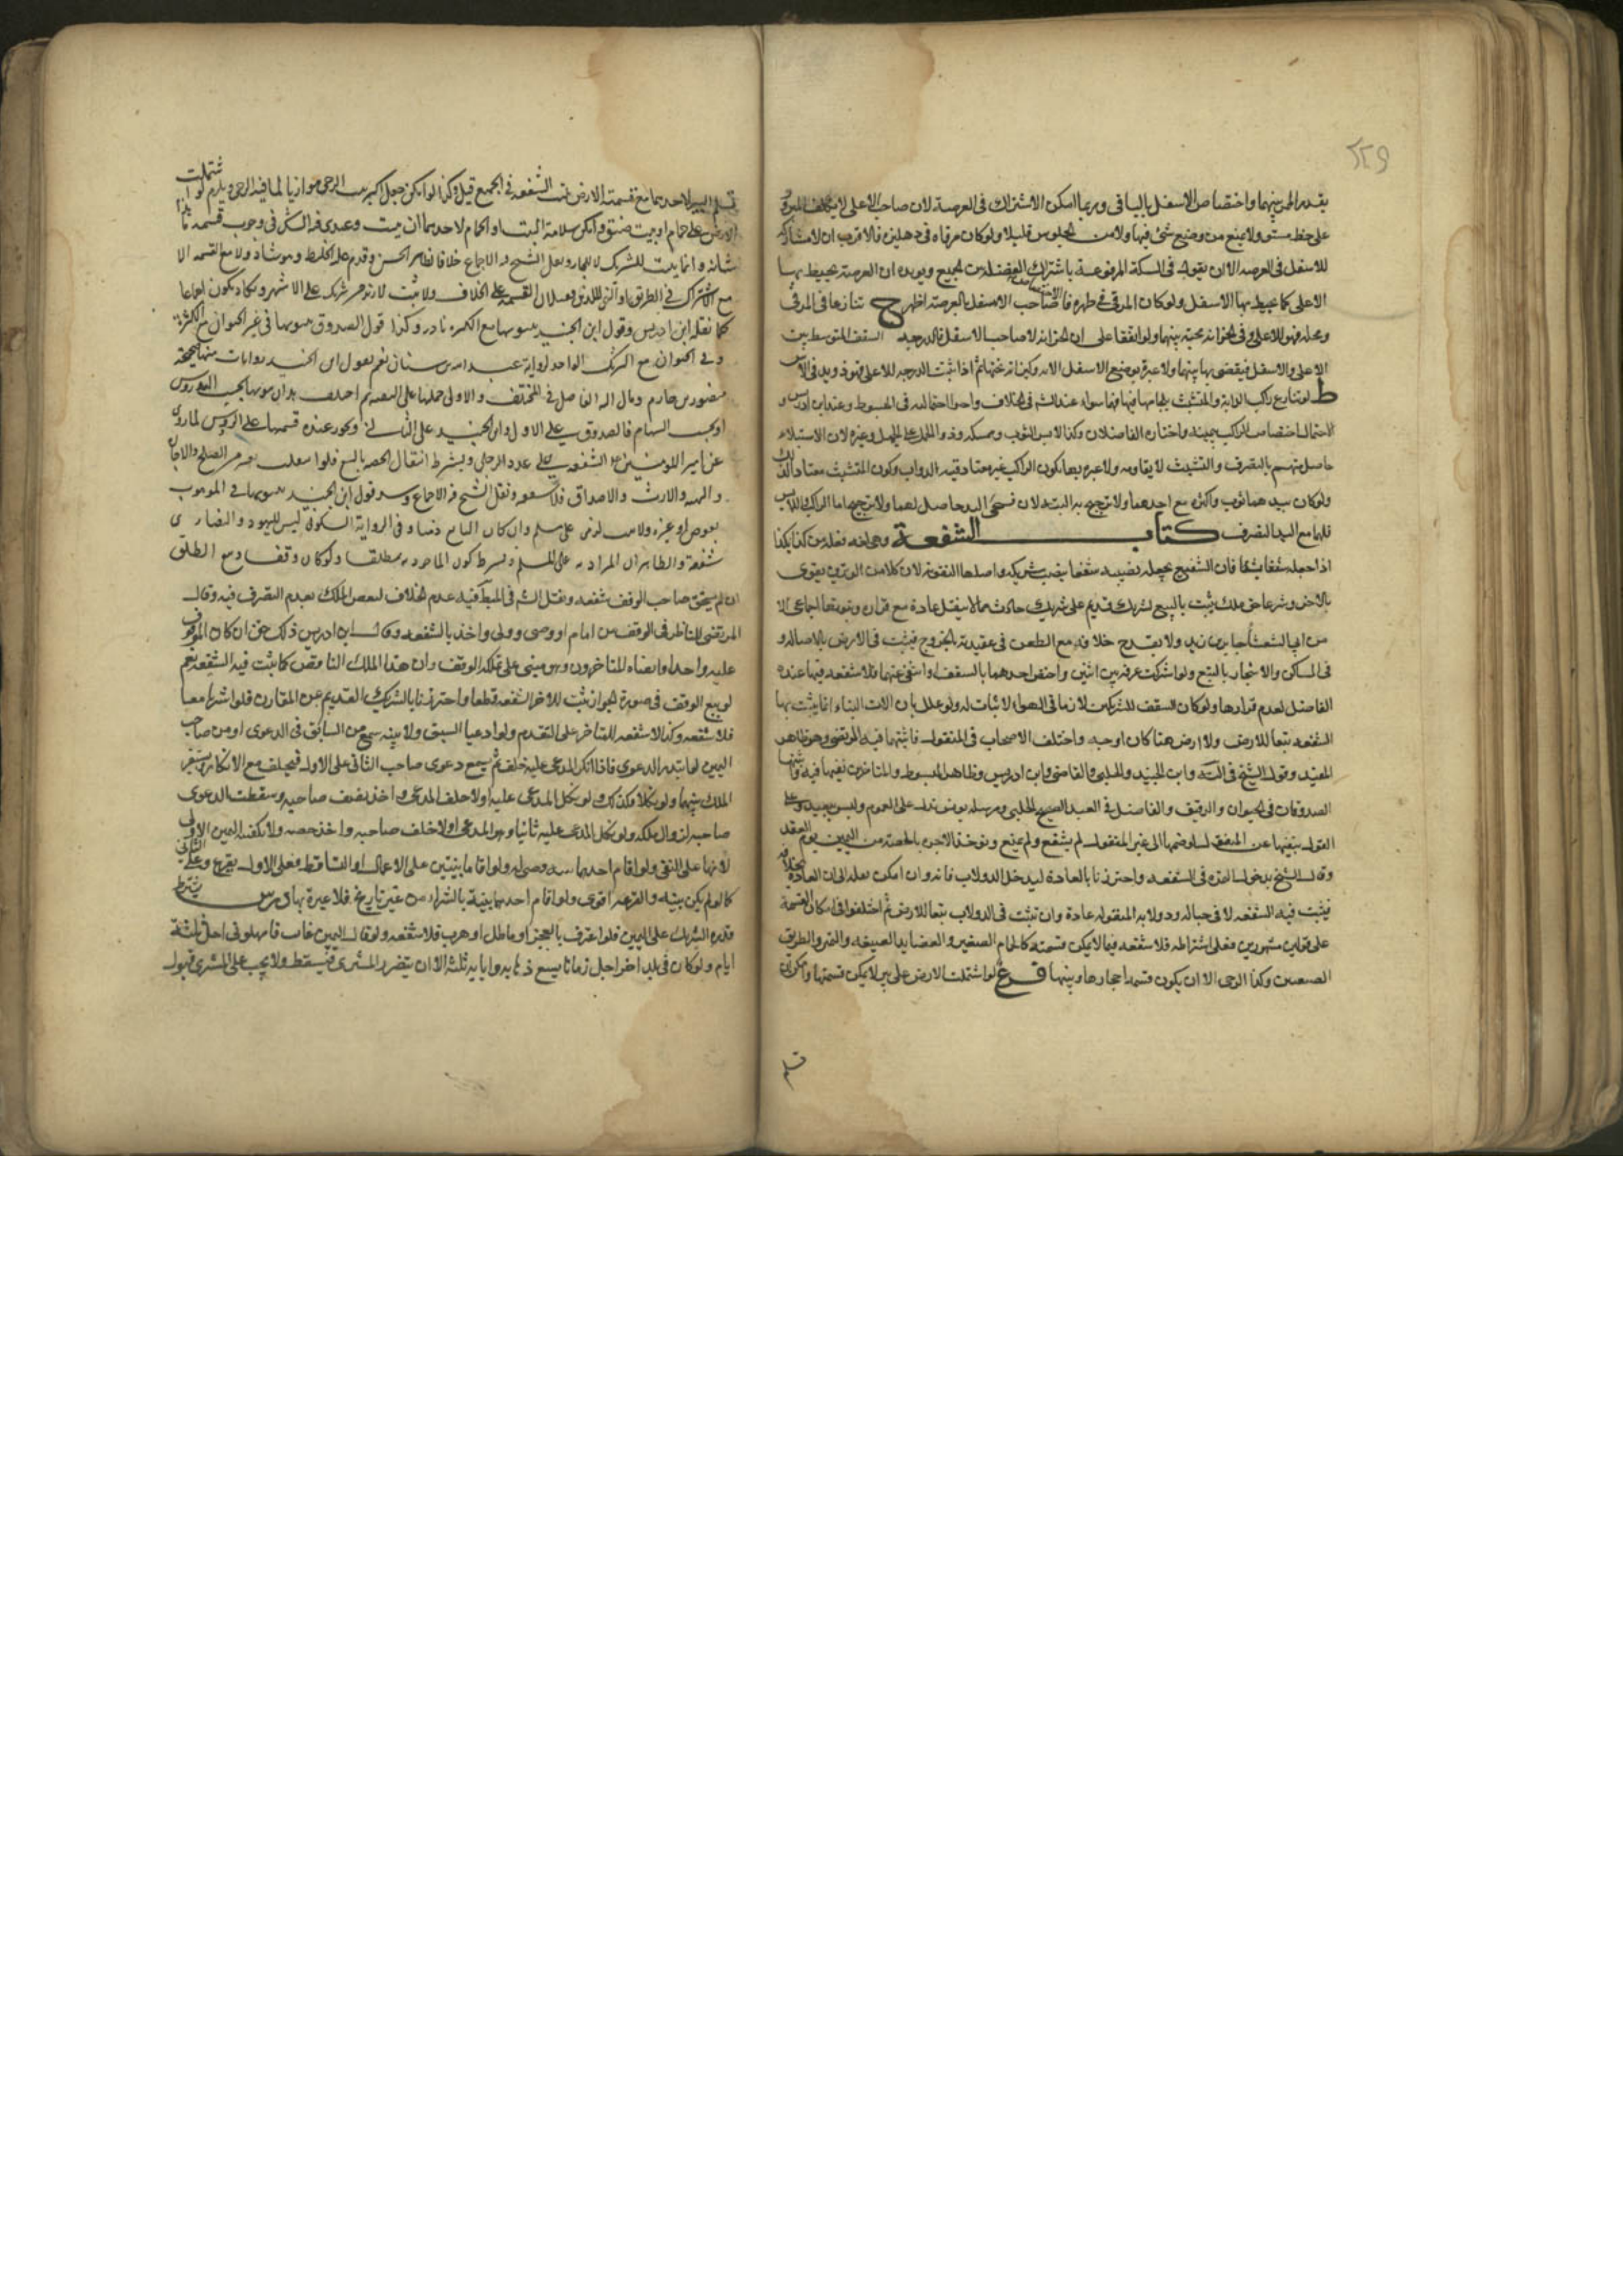 ٢٢٩
بقدر الممر بينهما واختصاص الاسفل بالباقى وربما امكن الاشتراك فى العرصة لان صاحب الاعلى لا يكلف المرور
على خط مستو ولا يمنع من وضع شئ فيها ولا من الجلوس قليلا ولو كان مرقاه فى دهليز فالاقرب ان لا مشاركة
للاسفل فى العرصه الا ان نقول فى السكة المرفوعة باشتراك الفضله بين الجميع ويؤيده ان العرصة يحيط بها
الاعلى كما يحيط بها الاسفل ولو كان المرقى فى ظهره فاختصاص صاحب الاسفل بالعرصة اظهر ح تنازعا فى المرقى
ومحله فهو للاعلى وفى الخزانة تحته بينهما ولو اتفقا على ان الخزانة لصاحب الاسفل فالدرجه السقف المتوسط بين
الاعلى والاسفل فيقضى بها بينهما ولا عبرة بوضع الاسفل الانه وكيزانه تحتها
ط لو تنازع راكب الدابة والمتشبث بلجامها فهما سواء عند الشيخ فى الخلاف واحد احتماليه فى المبسوط وعند ابن ادريس و
الاحتمال اختصاص الراكب بيمينه واختاره الفاضلان وكذا لابس الثوب وممسكه وذو الحمل على الجمل وغيره لان الاستيلاء
حاصل منهم بالتصرف والتشبث لا يقاومه ولا عبرة بها بكون الراكب غير معتاد قنيه الدواب وكون المتشبث معتادا لذلك
ولو كان بيدهما ثوب واكثره مع احدهما ولا ترجيح به البته لان مسمى اليد حاصل لهما ولا ترجيح اما الراكب واللابس
فلهما مع اليد التصرف كتاب الشفعة وهى لغه فعله من كذا بكذا
اذا جعله شفعا به فان الشفيع يجعل نصيبه شفعا بنصيب شريكه واصلها التقوية لان كلا من الوترين يقوى
بالاخر وشرعا حق ملك يثبت بالبيع لشريك قديم على شريك حادث فيما لا ينقل عادة مع قراره
من ابى الشعثا جابر بن زيد ولا يقدح خلافه مع الطعن فى عقيدته بالخروج فيثبت فى الارض بالاصاله و
فى المساكن والاشجار بالتبع ولو اشتركت غرفة بين اثنين واختص احدهما بالسقف او انتفى عنهما فلا شفعه فيها عنده
الفاضل لعدم قرارها ولو كان السقف للشريكين لانها فى الهواء لا ثبات له ولو علل بان الات البناء انما يثبت بها
الشفعه تبعا للارض ولا ارض هنا كان اوجه واختلف الاصحاب فى المنقول فاثبتها فيه المرتضى وهو ظاهر
المفيد وقول الشيخ فى النهاية وابن الجنيد والحلبى والقاضى وابن ادريس وظاهر المبسوط والمتاخرين نفيها فيه واثبتها
الصدوقان فى الحيوان والرقيق والفاضل فى العبد لصحيح الحلبى ومرسله يونس تدل على العموم وليس ببعيد وعلى
القول بنفيها عن المنقول لو ضمها الى غير المنقول لم يشفع
وقال الشيخ يدخل
فيثبت فيه الشفعه لا فى حباله ودولابه المنقوله عادة وان تثبت فى الدولاب تبعا للارض ثم اختلفوا فى امكان القسمة
على قولين مشهورين فعلى اشتراطه فلا شفعه فيما لا يمكن قسمته كالحمام الصغير والعضايد الضيقه والنهر والطريق
الضيقين وكذا الرحى الا ان يكون قسمه احجارها وبيتها فرع لو اشتملت الارض على بئر لا يمكن قسمتها وامكن ان
تسلم
تسلم البئر لاحدهما مع قسمة الارض ثبتت الشفعه فى الجميع قيل وكذا لو امكن جعل اكثر بيت الرحى موازيا لما فيه الرحى ويلزم لو اشتملت
الارض على حمام او بيت ضيق وامكن سلامة البيت او الحمام لاحدهما ان يثبت وعندى فيه اشكال فى وجوب قسمة
شانه وانما يثبت للشريك لا للجار ونقل الشيخ فيه الاجماع خلافا لظاهر الحسن وقدم على الخليط وهو شاذ ولا مع القسمه الا
مع الاشتراك فى الطريق او النهر اللذين يقبلان القسمه على الخلاف ولا يثبت لازيد من شريك على الاشهر ويكاد يكون اجماعا
كما نقله ابن ادريس وقول ابن الجنيد بثبوتها مع الكثره نادر وكذا قول الصدوق بثبوتها فى غير الحيوان مع الكثرة
وفى الحيوان مع الشريك الواحد لرواية عبد الله بن سنان نعم لقول ابن الجنيد روايات منها صحيحة
منصور بن حازم ومال اليه الفاضل فى المختلف والاولى حملها على التقيه ثم اختلف هل ان ثبوتها بحسب الرؤس
او بحسب السهام فالصدوق على الاول وابن الجنيد على الثانى وتجوز عنده قسمتها على الرؤس لما روى
عن امير المؤمنين ع الشفعه على عدد الرجال ويشترط انتقال الحصه بالبيع فلو انتقلت بغيره من الصلح والاجارة
والهبه والارث والاصداق فلا شفعه ونقل الشيخ فيه الاجماع وقول ابن الجنيد بثبوتها فى الموهوب
بعوض او غيره ولا يثبت لذمى على مسلم وان كان البائع ذميا وفى الرواية السكونى ليس لليهود والنصارى
شفعة والظاهر ان المراد به على المسلم ويشترط كون الماخوذ به مطلقا ولو كان وقفا ومع الطلق
ان لم يستحق صاحب الوقف شفعه ونقل الشيخ فى المبسوط فيه عدم الخلاف لنقص الملك بعدم التصرف فيه وقال
المرتضى للناظر فى الوقف من امام او وصى وولى واخذ بالشفعه وقال ابن ادريس ذلك حق ان كان الموقوف
عليه واحدا وارتضاه المتاخرون وهو مبنى على تملكه الوقف وان هذا الملك الناقص كما يثبت فيه الشفعه نعم
لو بيع الوقف فى صورة الجواز يثبت للاخر الشفعه قطعا واحترزنا بالشريك القديم عن المقارن فلو اشتريا معا
فلا شفعه وكذا لا شفعه للمتاخر على المتقدم ولو ادعيا السبق ولا بينه سمع من السابق فى الدعوى او من صاحب
اليمين لو ابتدر الدعوى فاذا انكر المدعى عليه حلف ثم يسمع دعوى صاحب الثانى على الاول فيحلف مع الانكار ويستقر
الملك بينهما ولو نكلا فكذلك ولو نكل المدعى عليه اولا حلف المدعى واخذ نصف صاحبه وسقطت الدعوى
صاحبه لزوال ملكه ولو نكل المدعى عليه ثانيا وهو المدعى اولا حلف صاحبه واخذ حصه ولا يكفيه اليمين الاولى
لانها على النفى ولو اقام احدهما بينه قضى له ولو اقاما بينتين على الاعمال او التساقط فعلى الاول يقرع وعلى الثانى
كما لو لم يكن بينه والقرعه اقوى ولو اقام احدهما بينة بالشراء من غير تاريخ فلا عبرة بها درس يشترط
قدرة الشريك على الثمن فلو اعترف بالعجز او ماطل او هرب فلا شفعه ولو قال الثمن غاب فامهلونى اجل ثلثة
ايام ولو كان فى بلد اخر اجل زمانا يسع ذهابه وايابه ثلثه الا ان يتضرر المشترى فيسقط ولا يجب على المشترى قبول